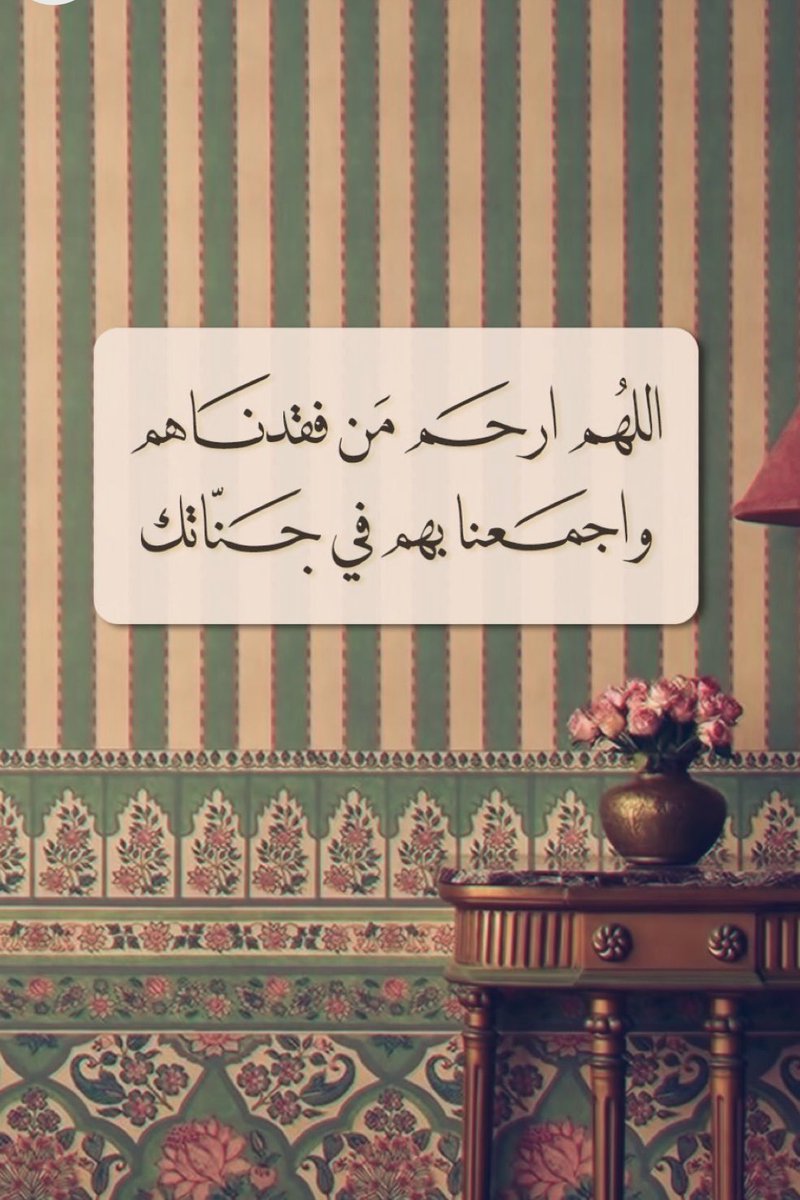 اللهُم ارحَم مَن فقدنَاهم
واجمَعنا بهم في جَنّاتك